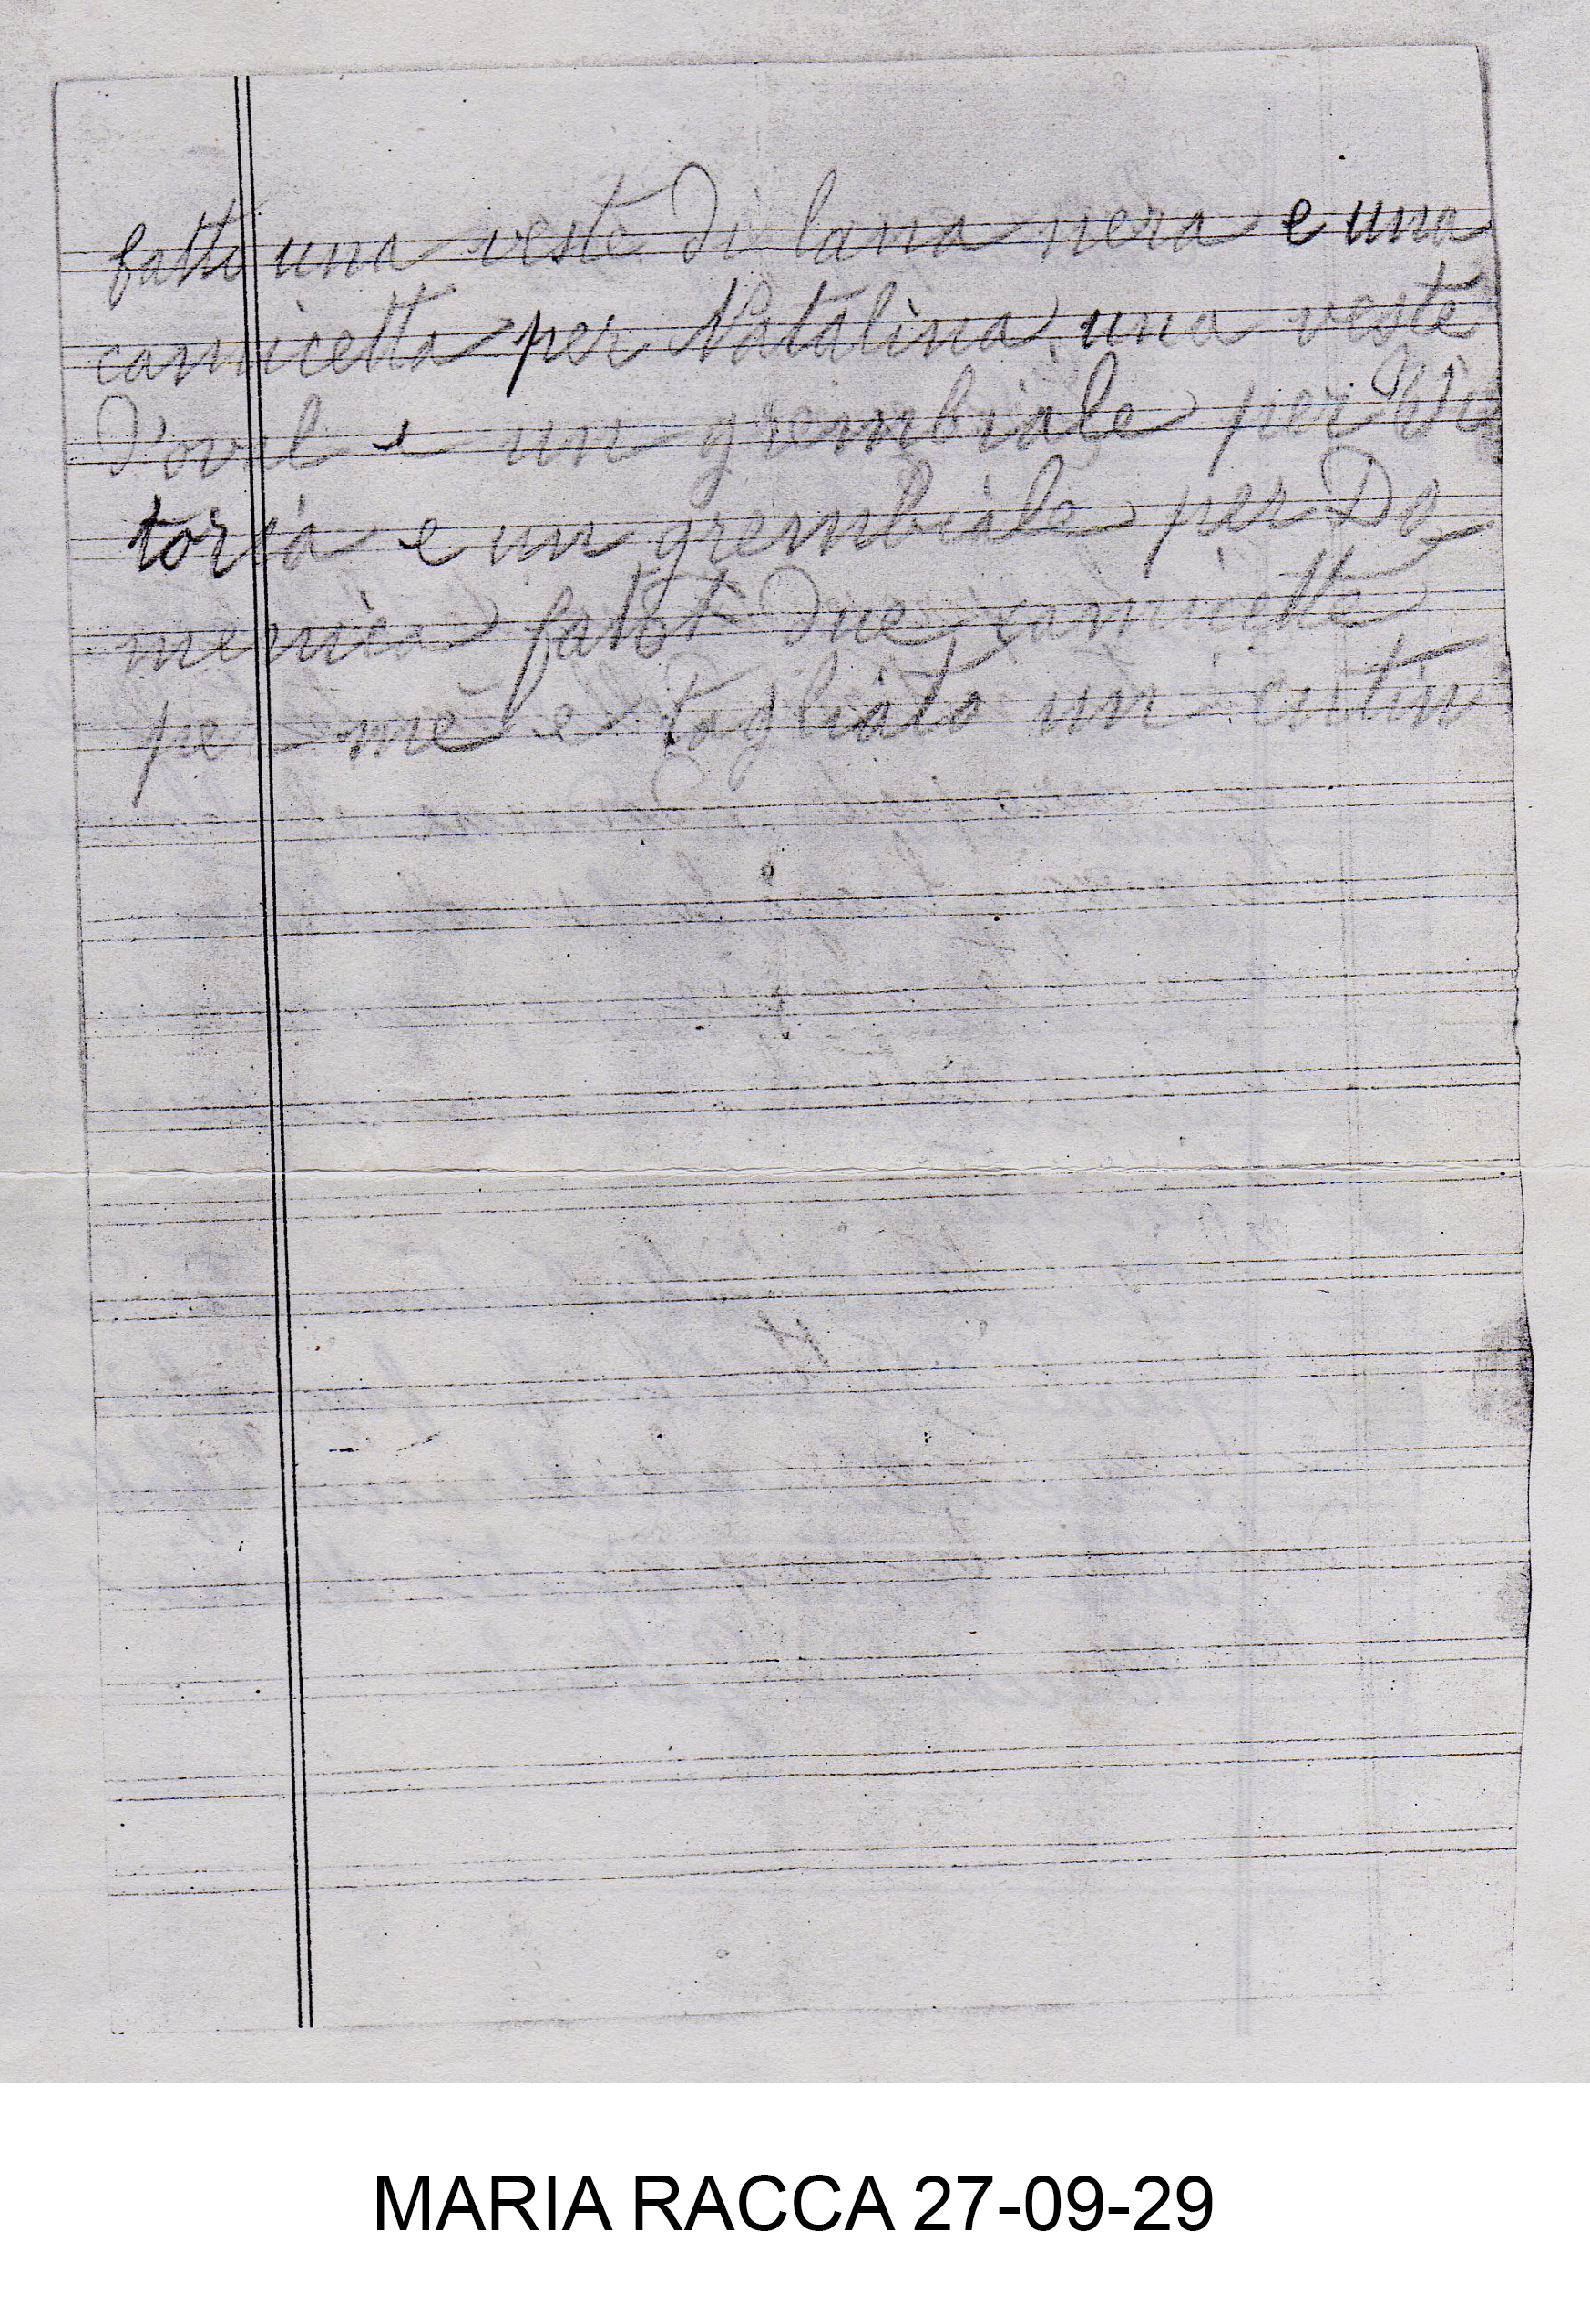 fatto una veste di lana nera e una
camicetta per Natalina, una veste
d'oval e un grembiale per Vi
toria e un grembiale per Do
menica fatot due camicette
per mè e tagliato un cutin
MARIA RACCA 27-09-29